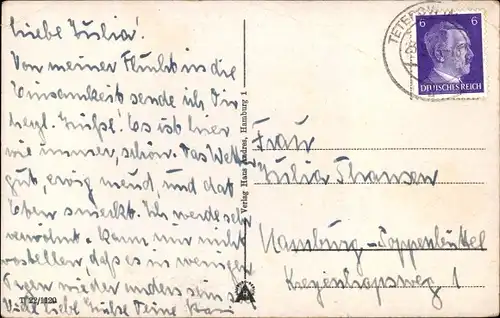 Liebe Julia!
Von meiner Flucht in die
Einsamkeit sende ich Dir
herzl. Grüße! Es ist hier
wie immer, schön. Das Wetter
gut, ewig und dat
Eten smeckt. Ich werde sehr
verwöhnt. Kann mir nicht
vorstellen, daß es in wenigen
Tagen wieder anders sein s
Viele liebe Grüße Deine
T 22/1120
Verlag Hans Andres, Hamburg 1
TETEROW
6 6
DEUTSCHES REICH
Frau
Julia Thamsen
Hamburg-Poppenbüttel
1